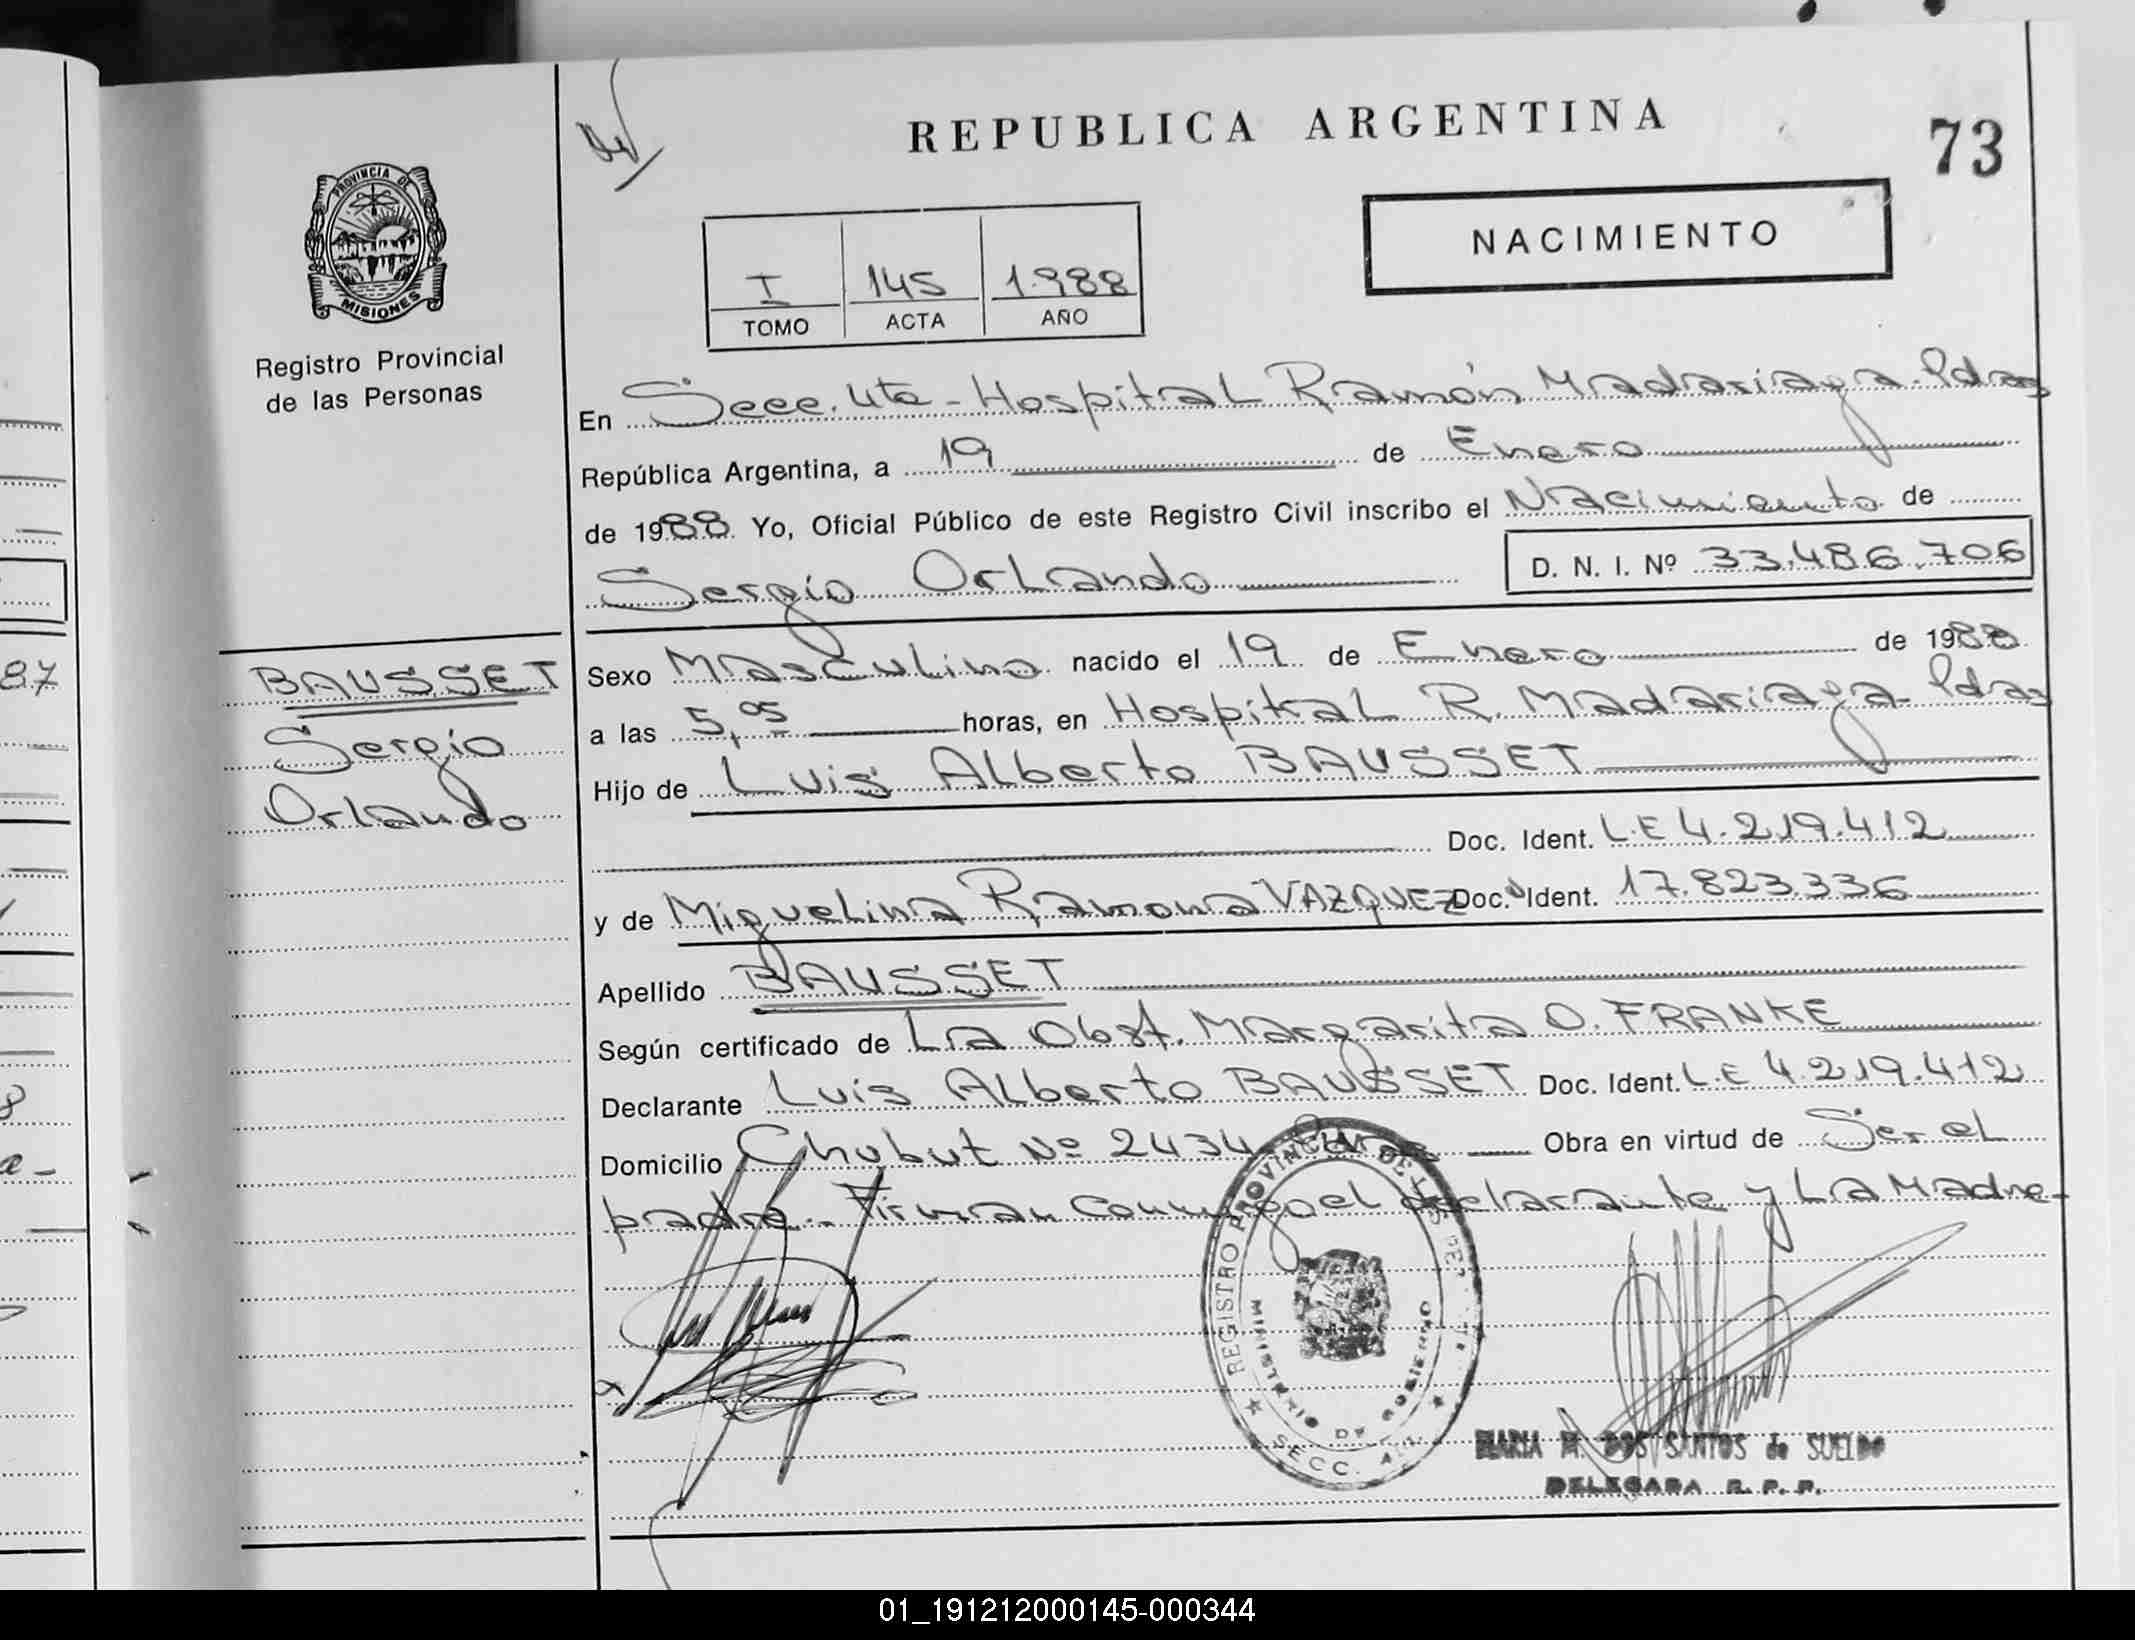 REPUBLICA ARGENTINA
73
NACIMIENTO
I 145 1.988
TOMO ACTA AÑO
PROVINCIA DE
MISIONES
Registro Provincial
de las Personas
BAUSSET
Sergio
Orlando
En Secc. 4ta - Hospital Ramón Madariaga - Pdas
República Argentina, a 19 de Enero
de 1988. Yo, Oficial Público de este Registro Civil inscribo el Nacimiento de
Sergio Orlando
D. N. I. Nº 33.486.706
Sexo Masculino nacido el 19 de Enero de 1988
a las 5,05 horas, en Hospital R. Madariaga - Pdas
Hijo de Luis Alberto BAUSSET
Doc. Ident. L.E 4.219.412
y de Miguelina Ramona VAZQUEZ Doc. Ident. 17.823.336
Apellido BAUSSET
Según certificado de La Obst. Margarita O. FRANKE
Declarante Luis Alberto BAUSSET Doc. Ident. L.E 4.219.412
Domicilio Chubut Nº 2434 Obra en virtud de Ser el
padre.- Firman conmigo el declarante y La Madre-
REGISTRO PROVINCIAL DE LAS PER
MINISTERIO DE GOBIERNO
SECC. 4
MARIA M. DOS SANTOS de SUELDO
DELEGADA R. P. P.
87
8
a-
01_191212000145-000344